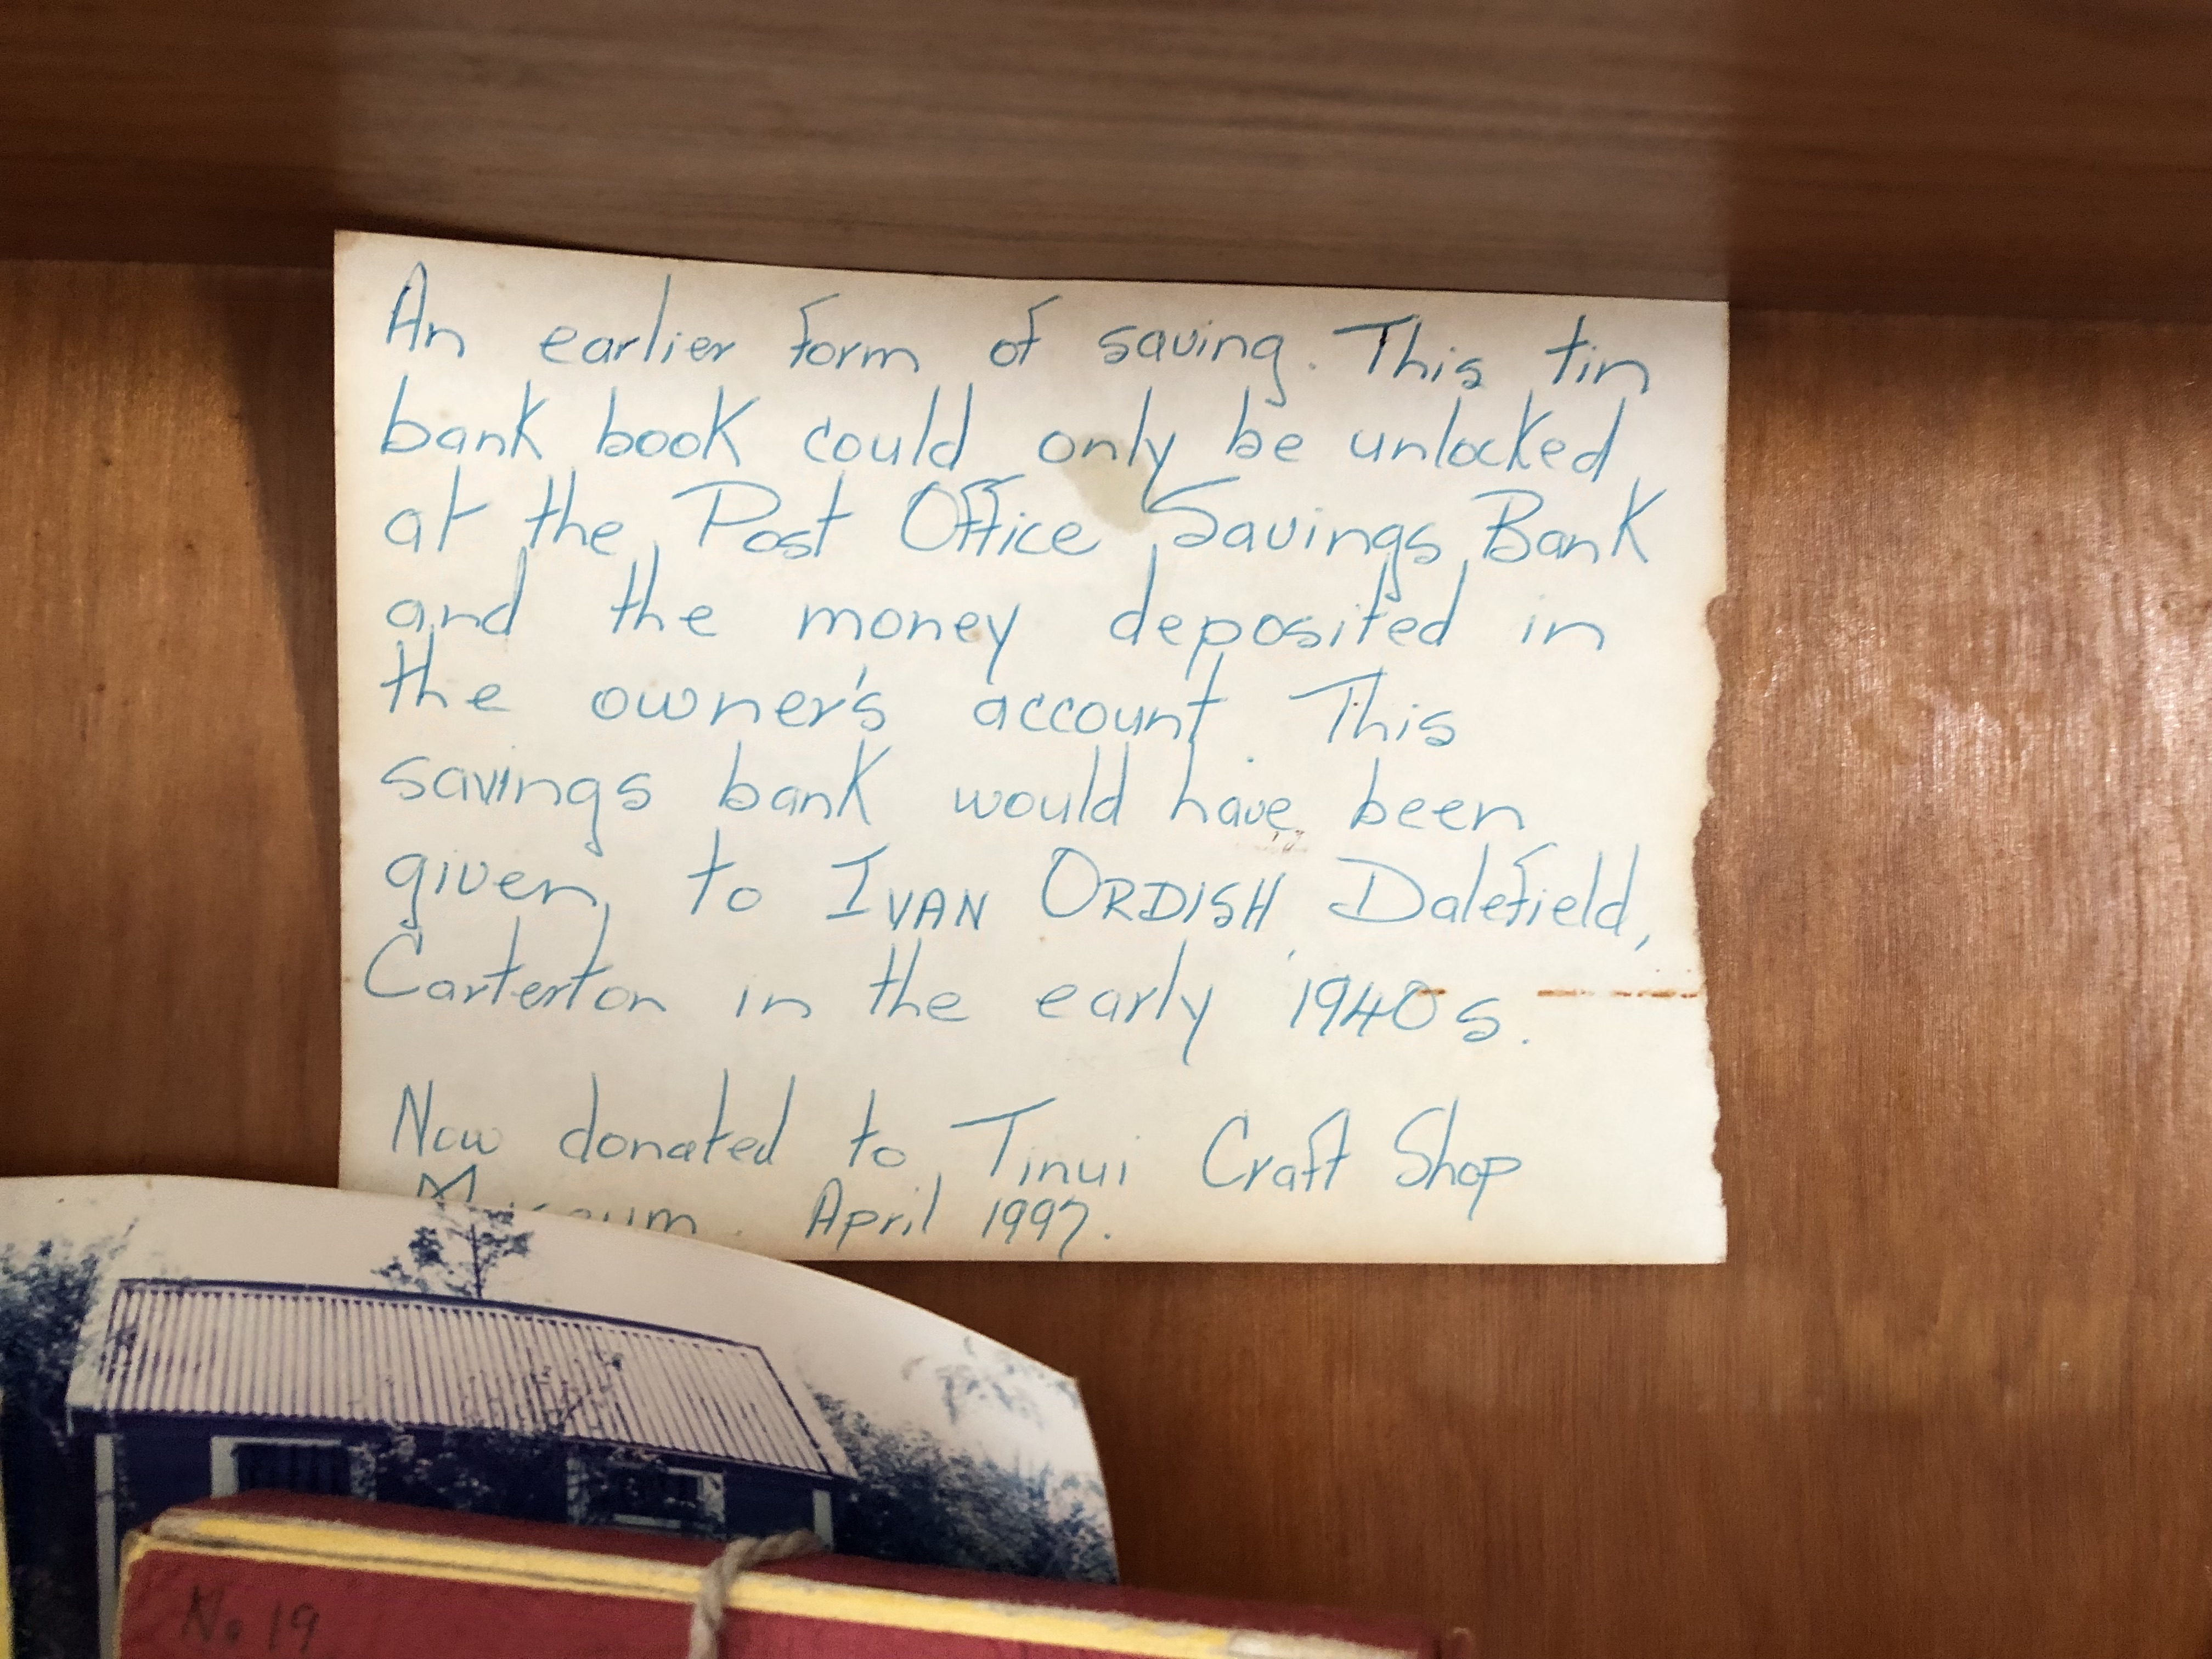 An earlier form of saving. This tin
bank book could only be unlocked
at the Post Office Savings Bank
and the money deposited in
the owner's account. This
savings bank would have been
given to IVAN ORDISH, Dalefield,
Carterton in the early 1940s.
Now donated to Tinui Craft Shop
Museum. April 1997.
No 19